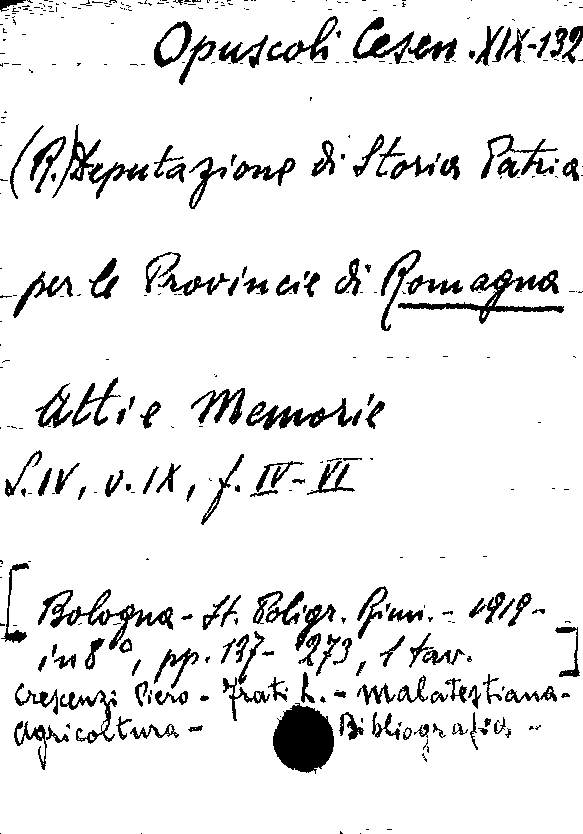 Opuscoli Cesen. XIX-132
(R.) Deputazione di Storia Patria
per le Provincie di Romagna
Atti e Memorie
S. IV, v. IX, f. IV-VI
[Bologna - St. Poligr. Riun. - 1919 -
in 8°, pp. 137-273, 1 tav.]
Crescenzi Piero - Frati L. - Malatestiana -
Agricoltura - Bibliografia -